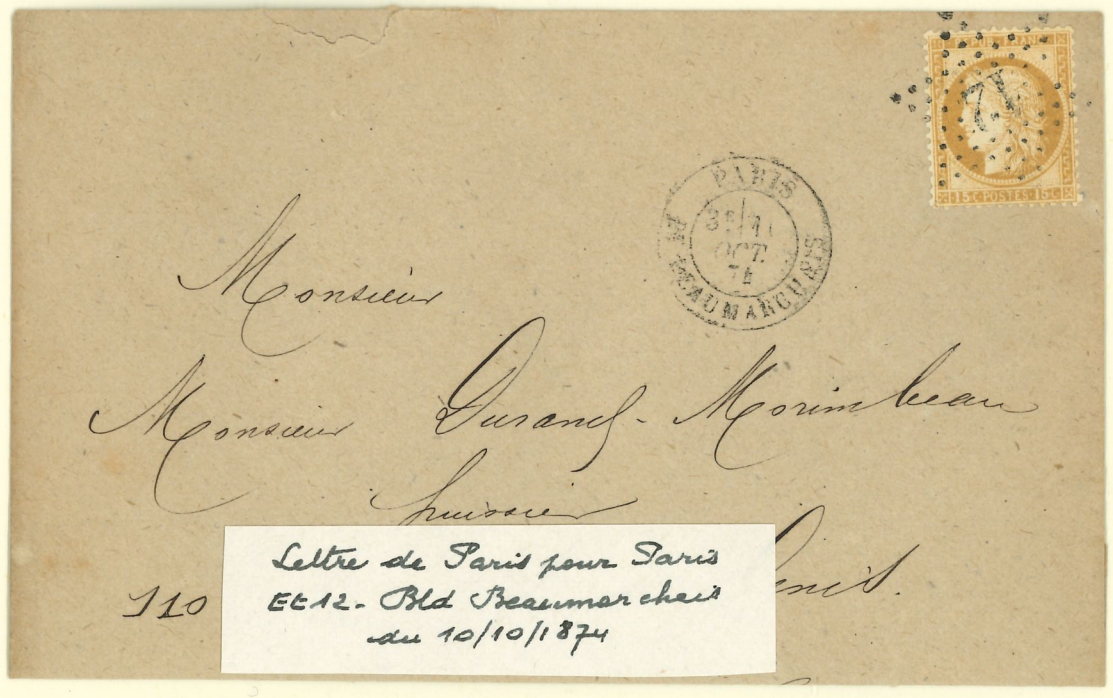 REPUB FRANC
12
15 C. POSTES 15 C.
PARIS
3E
OCT.
74
Bd BEAUMARCHAIS
Monsieur
Monsieur Durand-Morimbeau
huissier
110 Denis.
Lettre de Paris pour Paris
EE12 - Bld Beaumarchais
du 10/10/1874